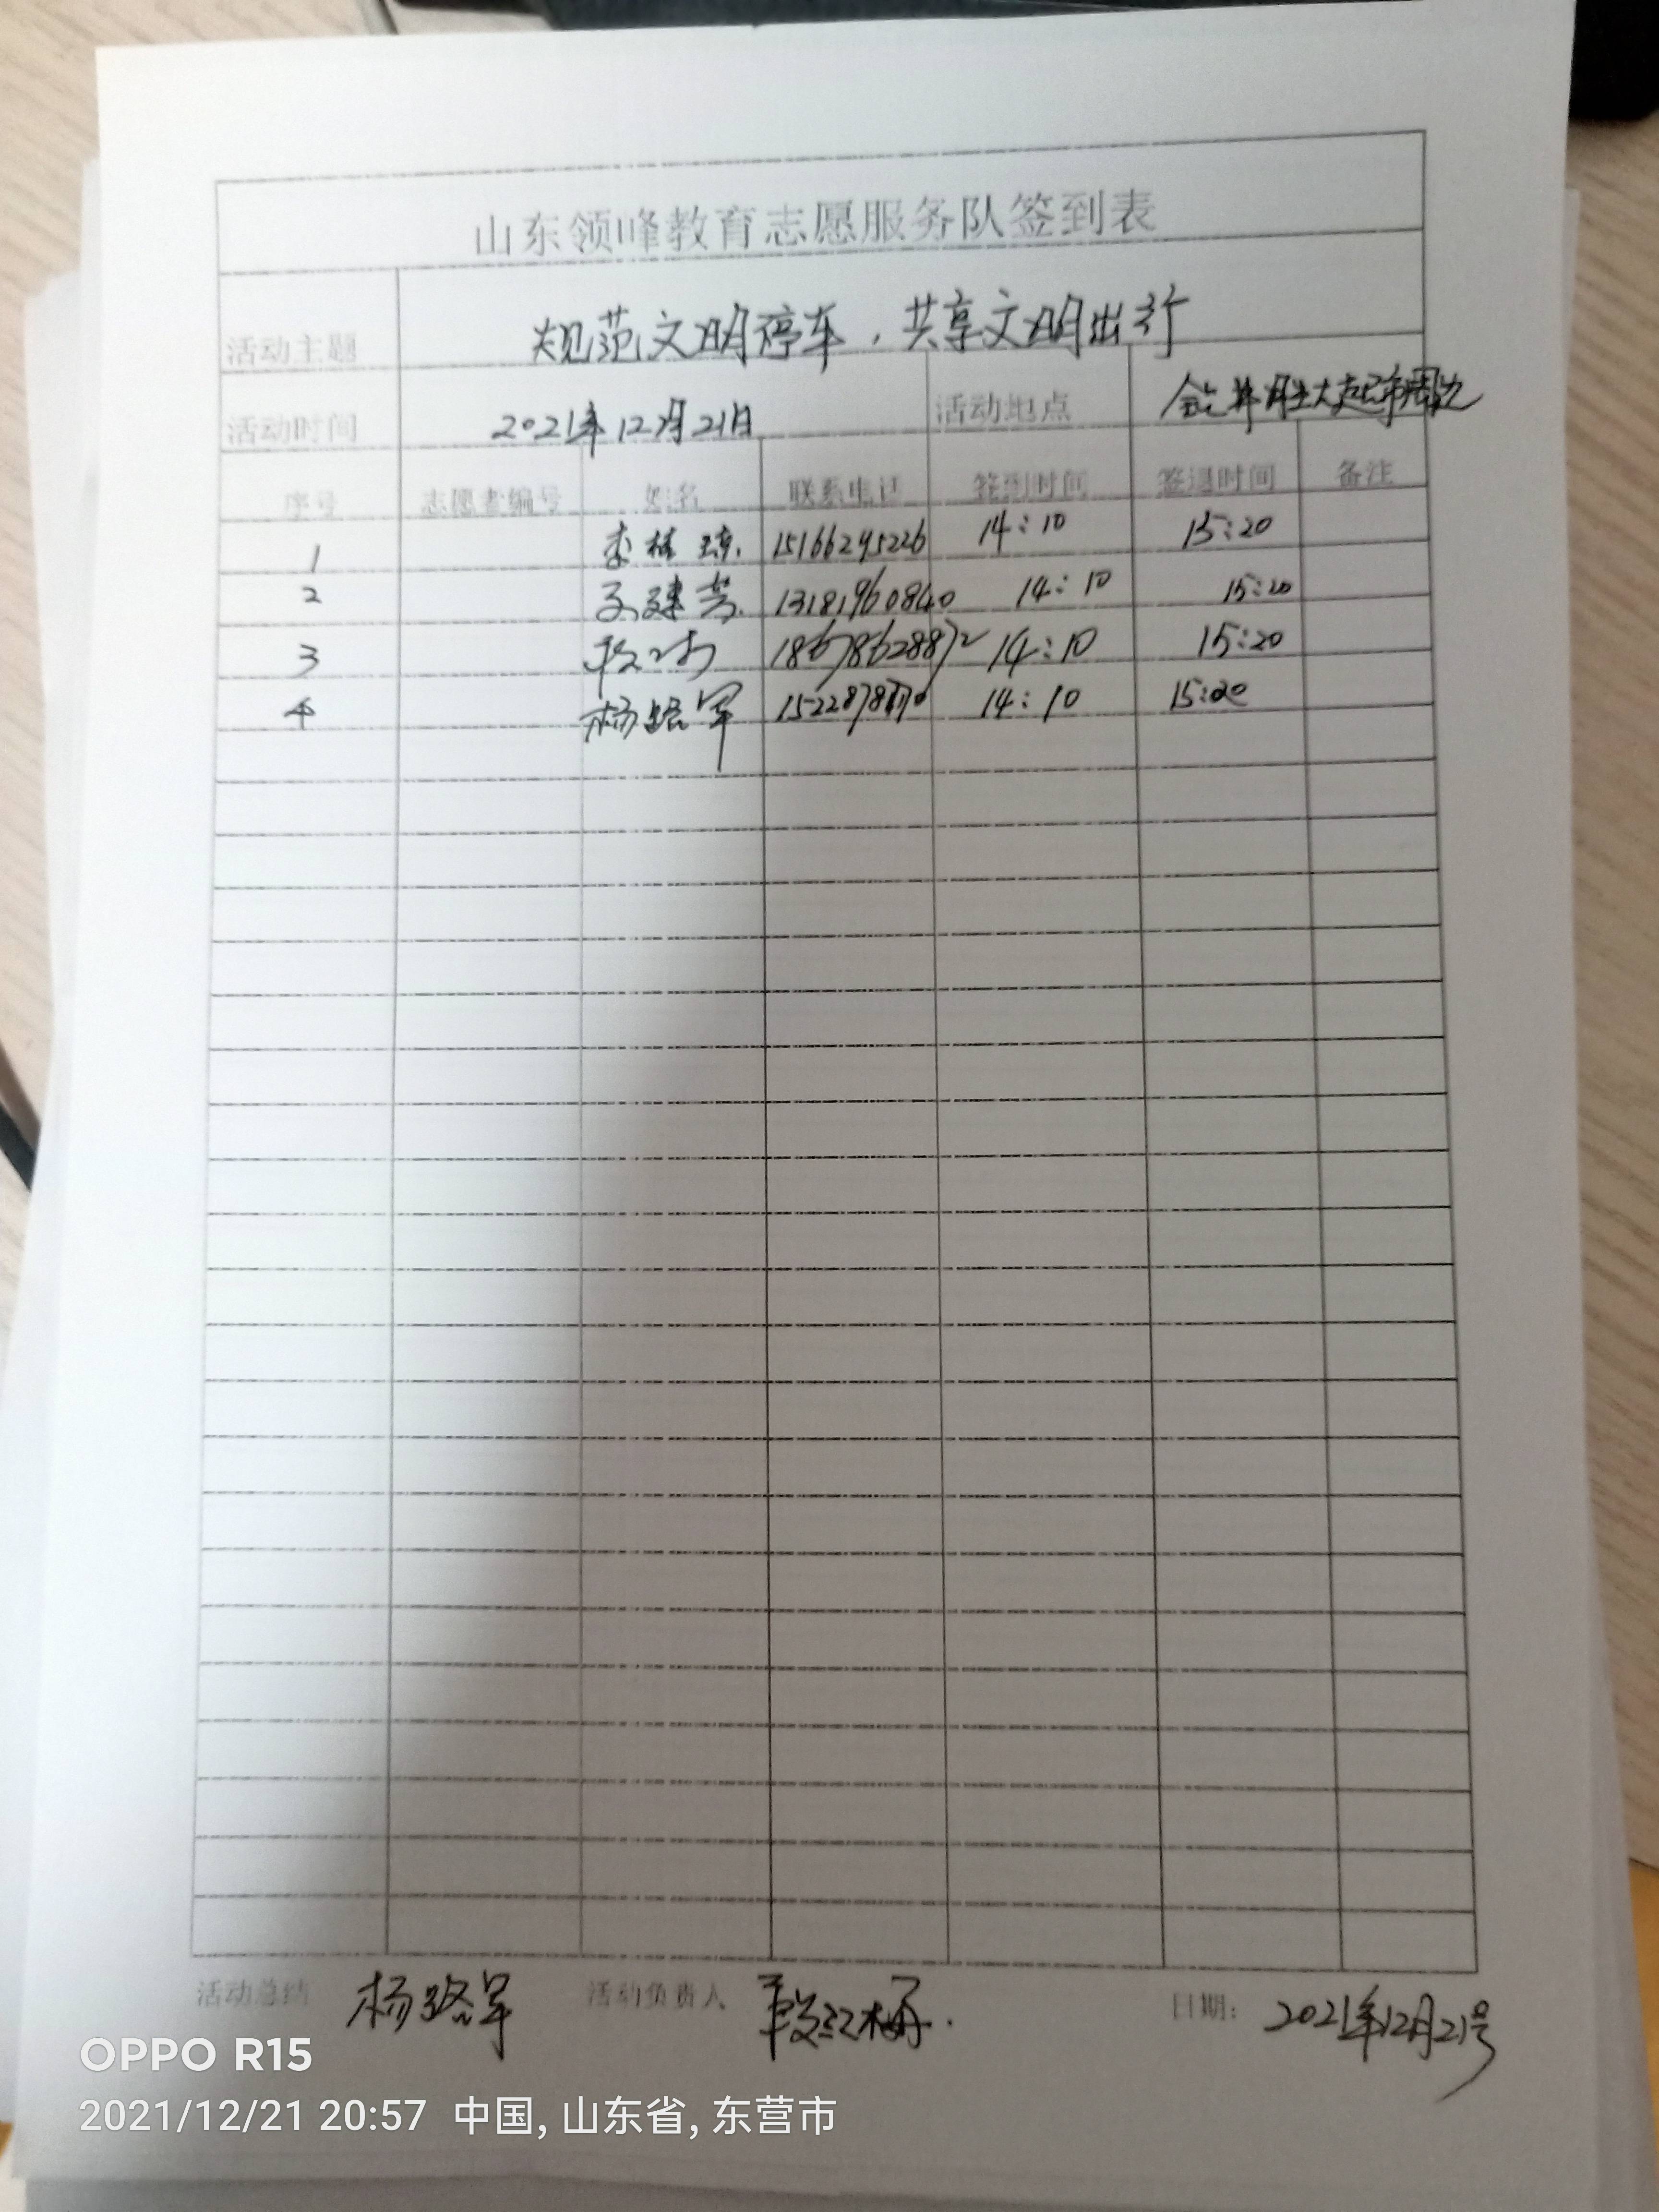 山东领峰教育志愿服务队签到表
活动主题 规范文明停车，共享文明出行
活动时间 2021年12月21日 活动地点 大超市周边
序号 志愿者编号 姓名 联系电话 签到时间 签退时间 备注
1 李桂琼 15166295226 14:10 15:20
2 建芳 13181960840 14:10 15:20
3 18678628872 14:10 15:20
4 杨路军 14:10 15:20
活动总结 杨路军 活动负责人 段红梅 日期： 2021年12月21号
OPPO R15
2021/12/21 20:57 中国, 山东省, 东营市